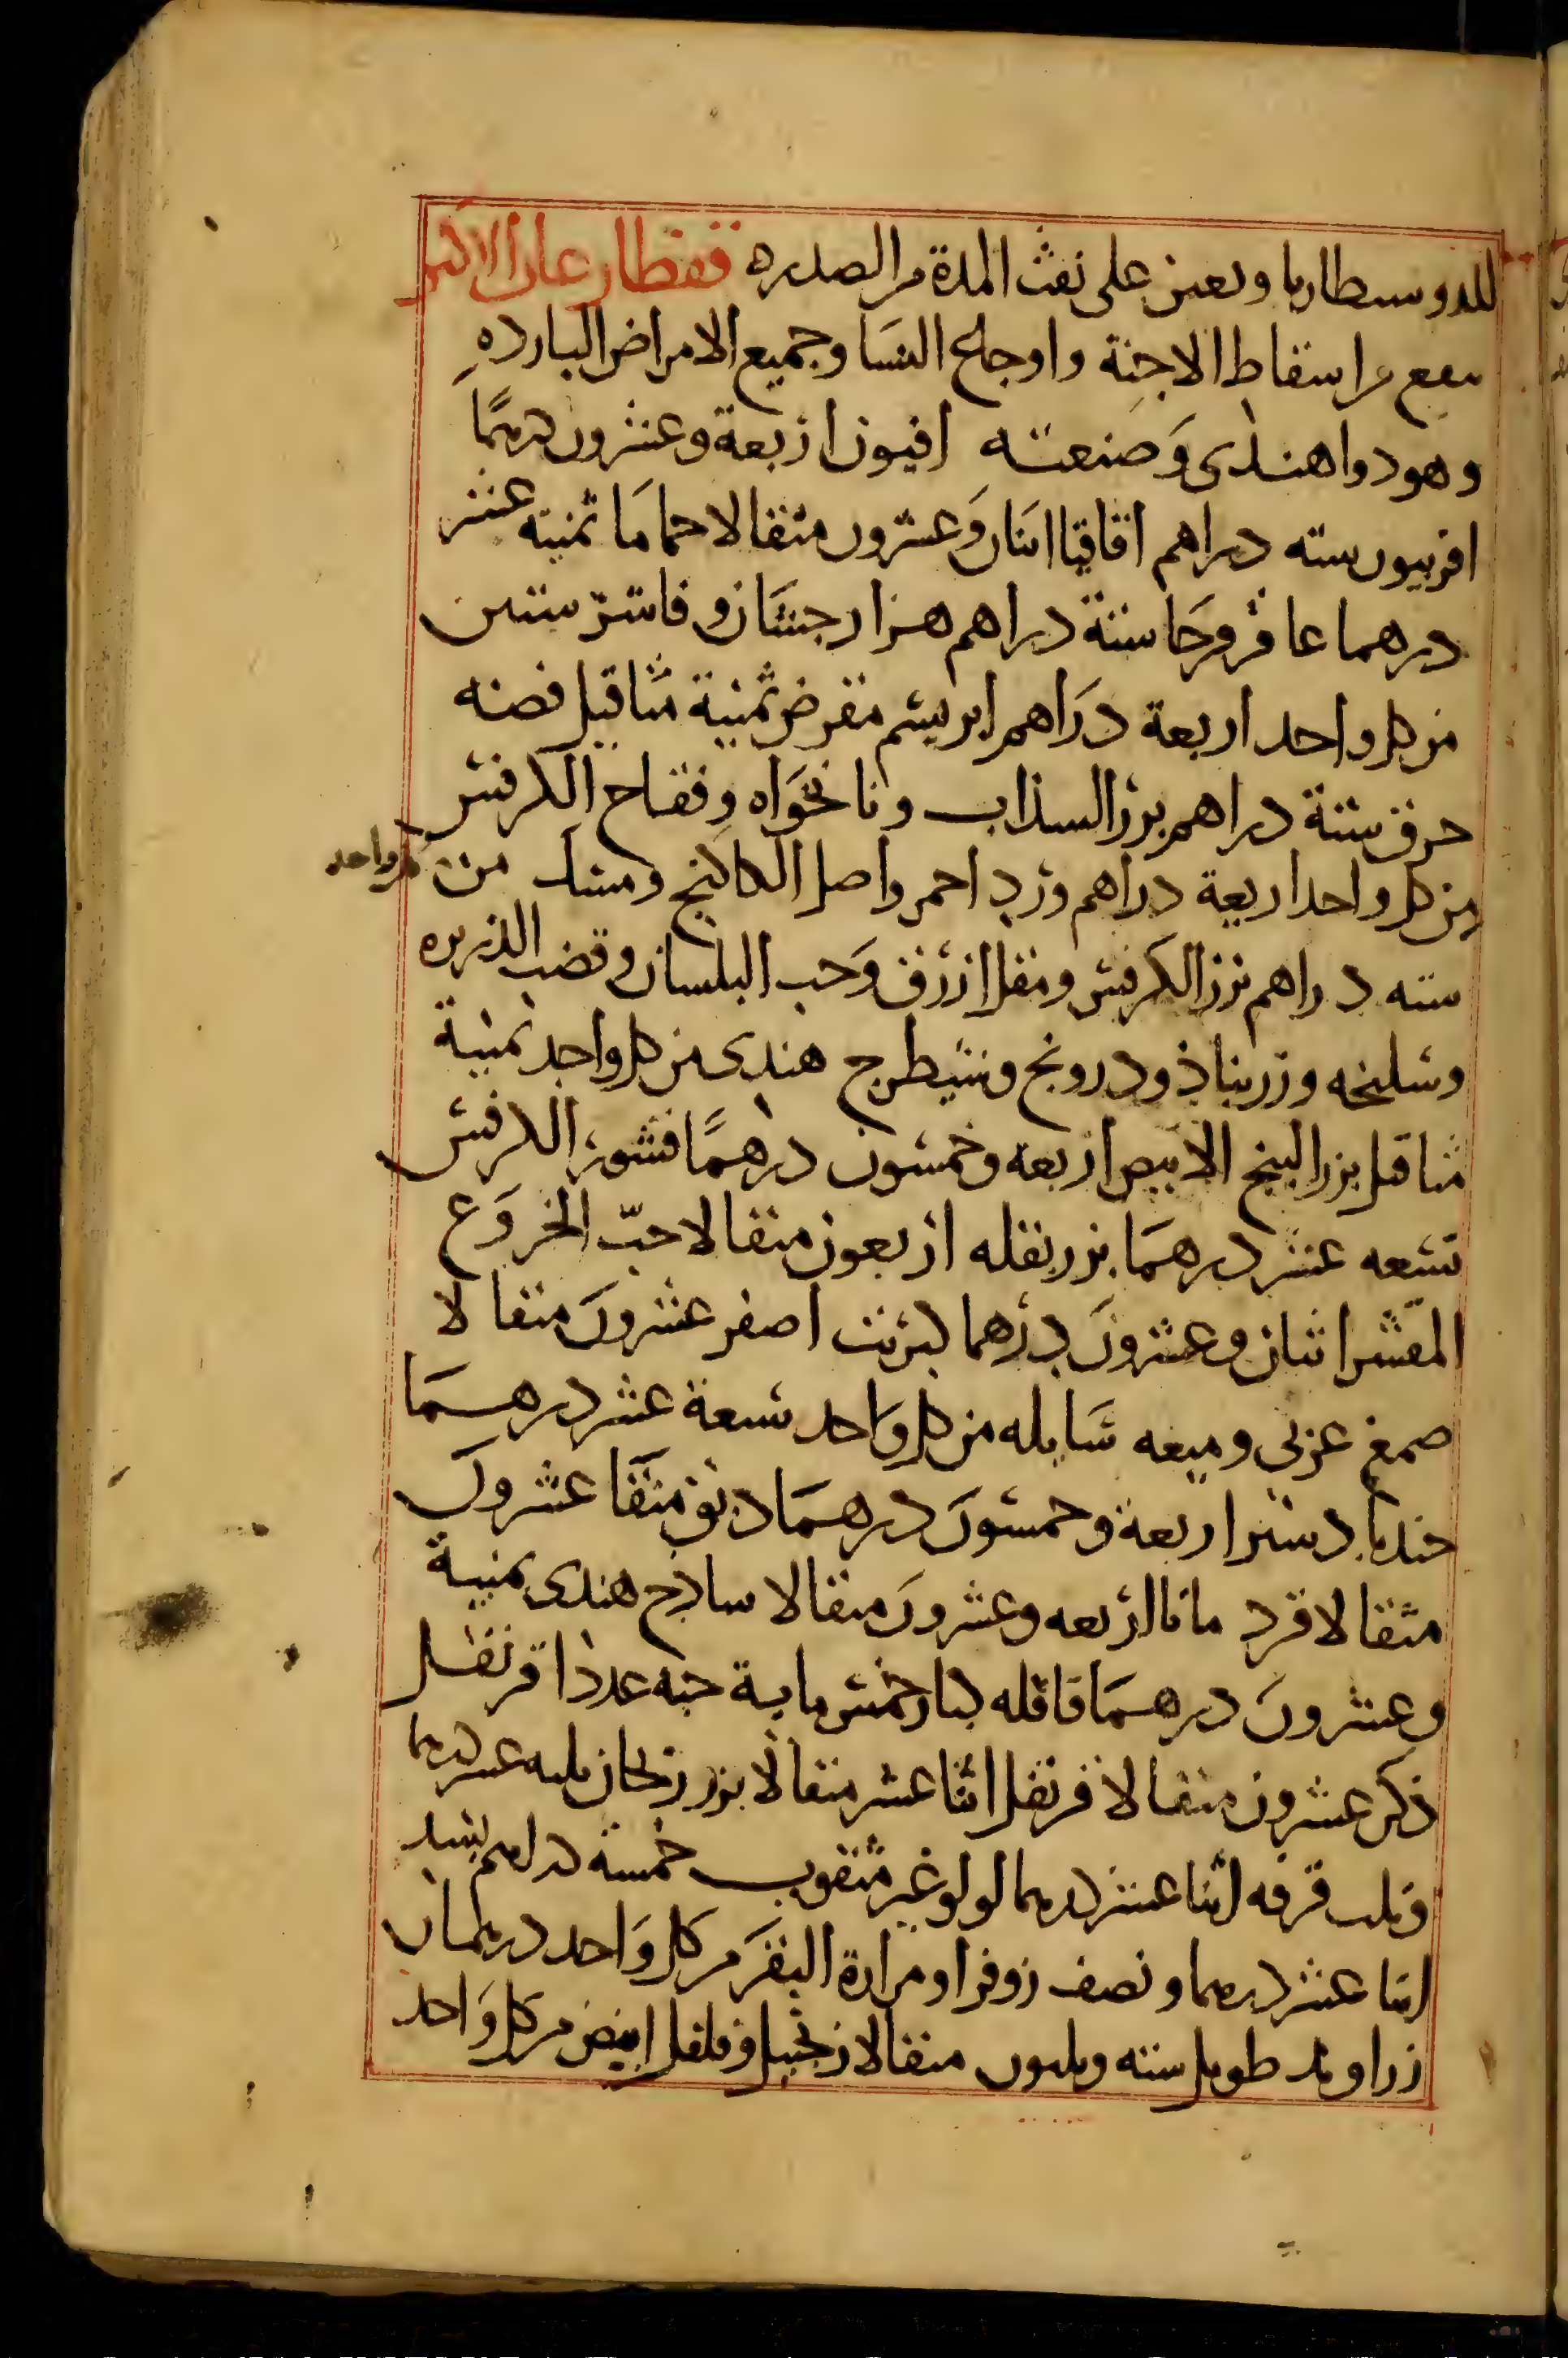 للدوسنطاريا ويعين على نفث المدة من الصدر ه قفطارعان الاكبر
ينفع من اسقاط الاجنة واوجاع النسا وجميع الامراض الباردهِ
وهو دوا هندى وَصنعته افيون اربعة وعشرون درهمًا
افربيون سته دراهم اقاقيا اثنان وَعشرون مثقالا حماما ثمنيه عشر
درهما عاقرقرحا ستة دراهم هزارجشان وفاشرستين
من كل واحد اربعة دراهم ابريشم مقرض ثمنية مثاقيل فضه
حرف ستة دراهم بزر السذاب ونانخواه وفقاح الكرفس
من كل واحد اربعة دراهم ورد احمر واصل الكاكنج ومسك من كل واحد
سته دراهم بزر الكرفس ومقل ازرق وَحب البلسان وقصب الذريره
وسليخه وزرنباذ ودرونج وشيطرج هندى من كل واحد ثمنية
مثاقيل بزر البنج الابيض اربعه وخمسون درهمًا قشور الكرفس
تسعه عشر درهمَا بزر بقله اربعون مثقالا حبّ الخروَع
المقشر اثنان وعشرونَ درهما كبريت اصفر عشرونَ مثقالا
صمغ عربى وميعه سَايله من كل وَاحد تسعة عشر درهمَا
جندبادستر اربعة وخمسونَ درهمَا دبق منقا عشرونَ
مثقالا قرد مانا اربعه وعشرونَ مثقالا ساذج هندى ثمنية
وعشرونَ درهمَا قاقله كبار خمس ماية حبه عددا قرنفل
ذكر عشرون مثقالا قرنفل اثنا عشر مثقالا بزر ريحان ثلثه عشر درهما
قرفه اثنا عشر درهما لولو غير مثقوب خمسة دراهم بسد
اثنا عشر درهما ونصف زوفرا ومرارة البقر من كل وَاحد درهمان
زراوند طويل سته وثلثون مثقالا زنجبيل وفلفل ابيض من كل وَاحد